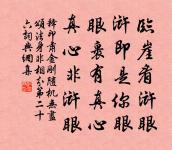 臨崖看滸眼
滸即是你眼
眼裏有真心
真心非滸眼
釋印肅金剛隨機無盡
頌法身非相分第二十
六詞典網集